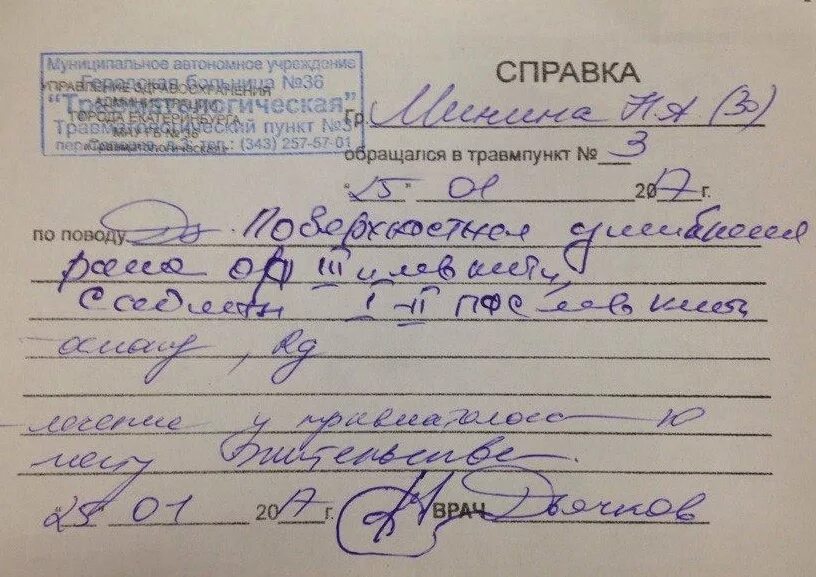 Муниципальное автономное учреждение
Городская больница №36
"Травматологическая"
Травматологический пункт №3
тел.: (343) 257-57-01
УПРАВЛЕНИЕ ЗДРАВООХРАНЕНИЯ
АДМИНИСТРАЦИИ
ГОРОДА ЕКАТЕРИНБУРГА
МАУ ГБ № 36
«Травматологическая»
СПРАВКА
Гр. Минина НА (30)
обращался в травмпункт № 3
"25" 01 2017 г.
по поводу Ds. Поверхностная ушибленная
рана III п. лев кисти,
Ссадины I-II ПФС лев кисти
лечение у травматолога по
месту жительства.
"25" 01 2017 г. ВРАЧ Дьячков